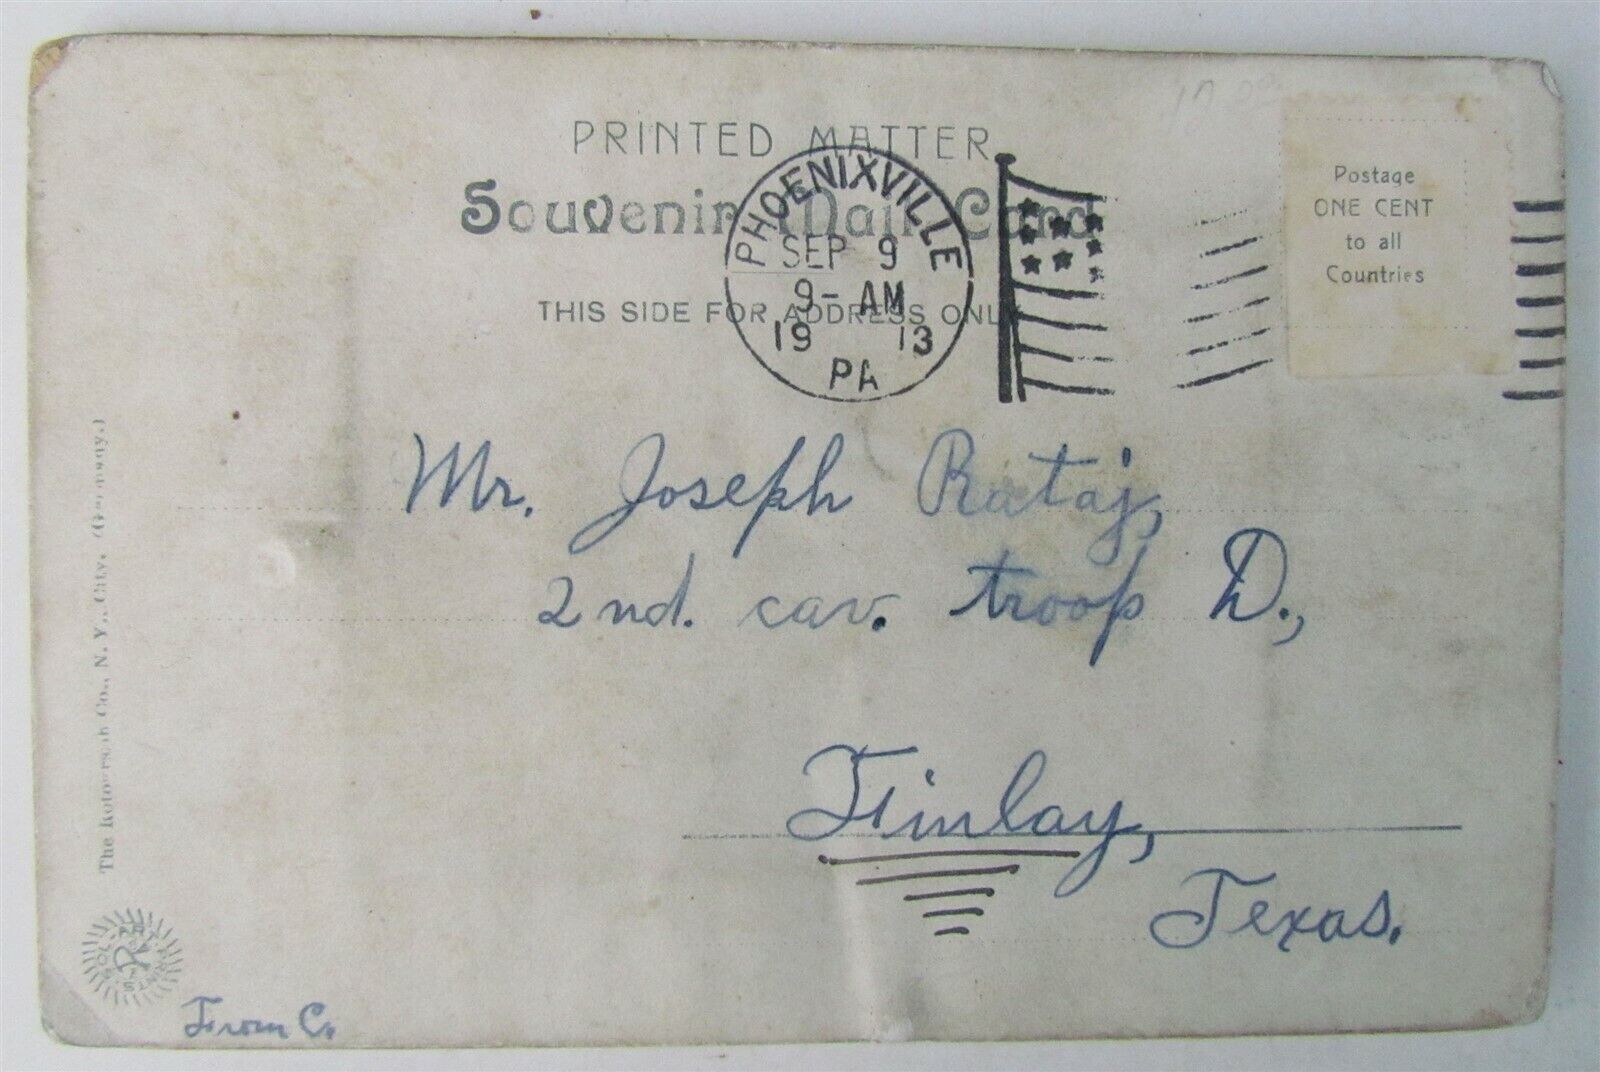 PRINTED MATTER
Souvenir Mail Card
THIS SIDE FOR ADDRESS ONLY
PHOENIXVILLE
SEP 9
9- AM
19 13
PA
Postage
ONE CENT
to all
Countries
Mr. Joseph Rataj,
2nd. cav. troop D.,
Finlay,
Texas.
The Rotograph Co., N. Y. City. (Germany.)
From C.